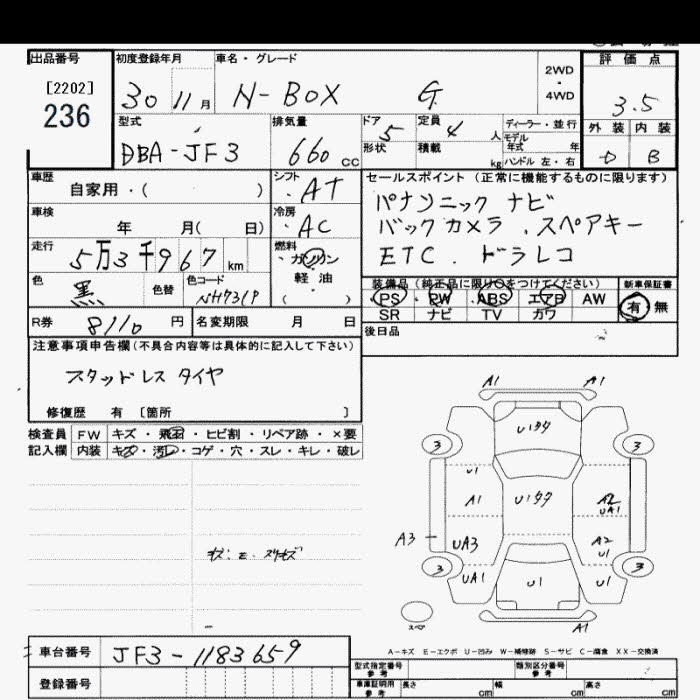 出品番号 初度登録年月 車名・グレード 2WD ・ 4WD 評価点
[2202]
236
30 11月 N-BOX G 3.5
型式 排気量 ドア 定員 人 ディーラー・並行 外装 内装
DBA-JF3 660cc 5 4 形状 積載 kg モデル年式 年 ハンドル 左・右 D B
車歴 自家用・( ) シフト AT セールスポイント (正常に機能するものに限ります)
パナソニック ナビ
車検 年 月( 日) 冷房 AC バックカメラ . スペアキー
走行 5万3千967km 燃料 ガソリン・軽油・( ) ETC . ドラレコ
色 黒 色替 色コード NH731P 装備品 (純正品に限り○をつけてください) 新車保証書
PS・PW・ABS・エアB AW 有・無
SR ナビ TV カワ
R券 8110円 名変期限 月 日 後日品
注意事項申告欄 (不具合内容等は具体的に記入して下さい)
スタッドレス タイヤ
修復歴 有 〔箇所 〕
検査員 FW キズ・飛石・ヒビ割・リペア跡・×要
記入欄 内装 キズ・汚レ・コゲ・穴・スレ・キレ・破レ
A1 A1
U1タタ
3 3
U1
A1 U1タタ A2 UA1
A3 UA3 A2 U1
3 3
UA1 U1 U1
スペア A1
A-キズ E-エクボ U-凹み W-補修跡 S-サビ C-腐食 XX-交換済
車台番号 JF3-1183659 型式指定番号 参考 類別区分番号 参考
登録番号 車庫証明用 参考 長さ cm 幅 cm 高さ cm